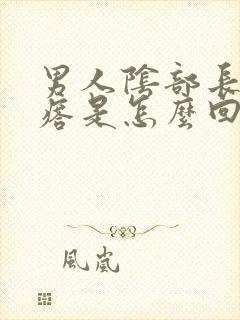 男人陰部長
痞是怎麼回
風嵐